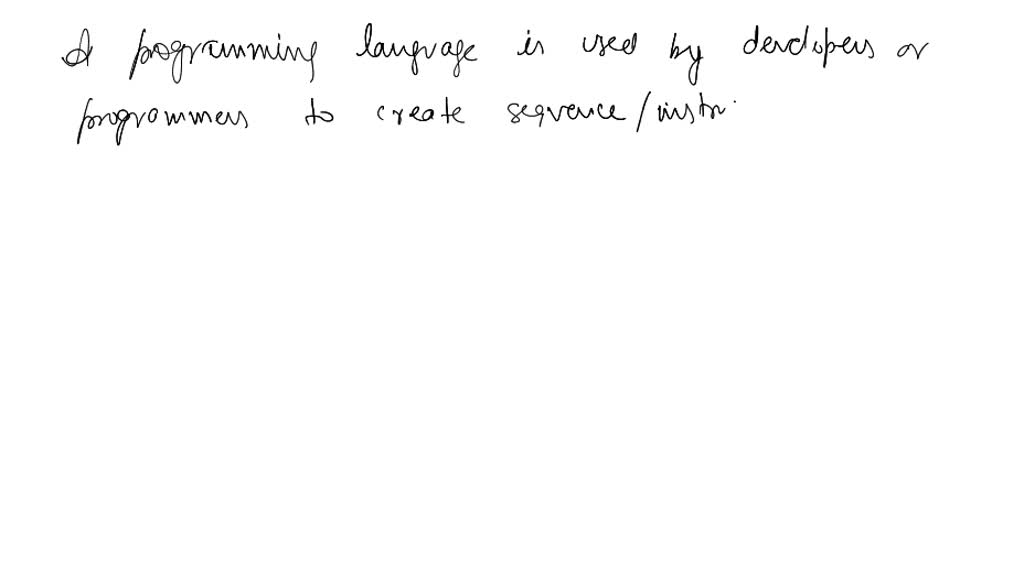 A programming language is used by developers or
programmers to create sequence/instr